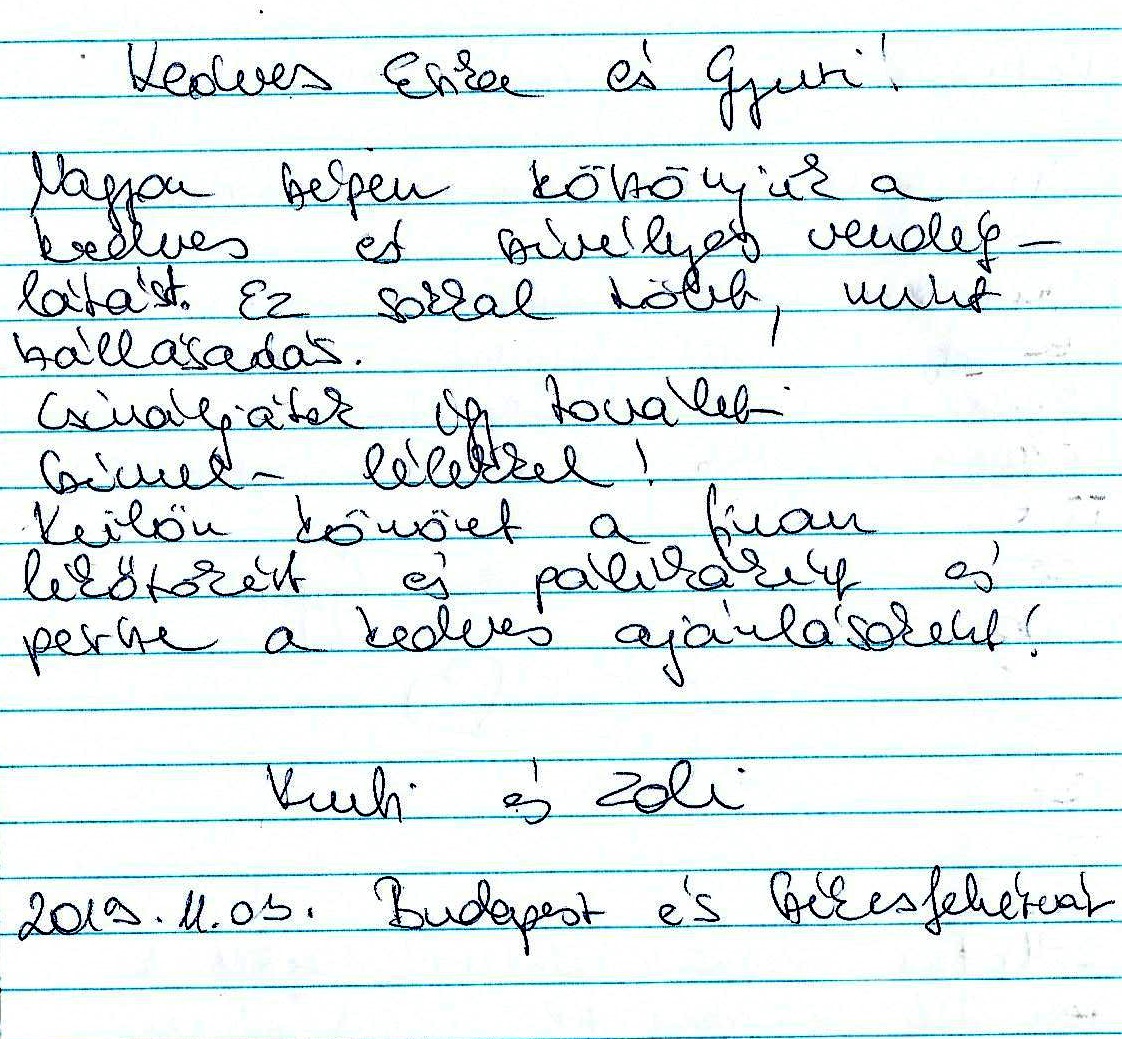 Kedves Enikő és Gyuri!
Nagyon szépen köszönjük a
kedves és szívélyes vendég-
látást. Ez sokkal több, mint
szállásadás.
Csináljátok így tovább
szívvel- lélekkel!
Külön köszönet a finom
lekvárokért és pálinkákért és
persze a kedves ajánlásokért!
és Zoli
2019.11.03. Budapest és Székesfehérvár